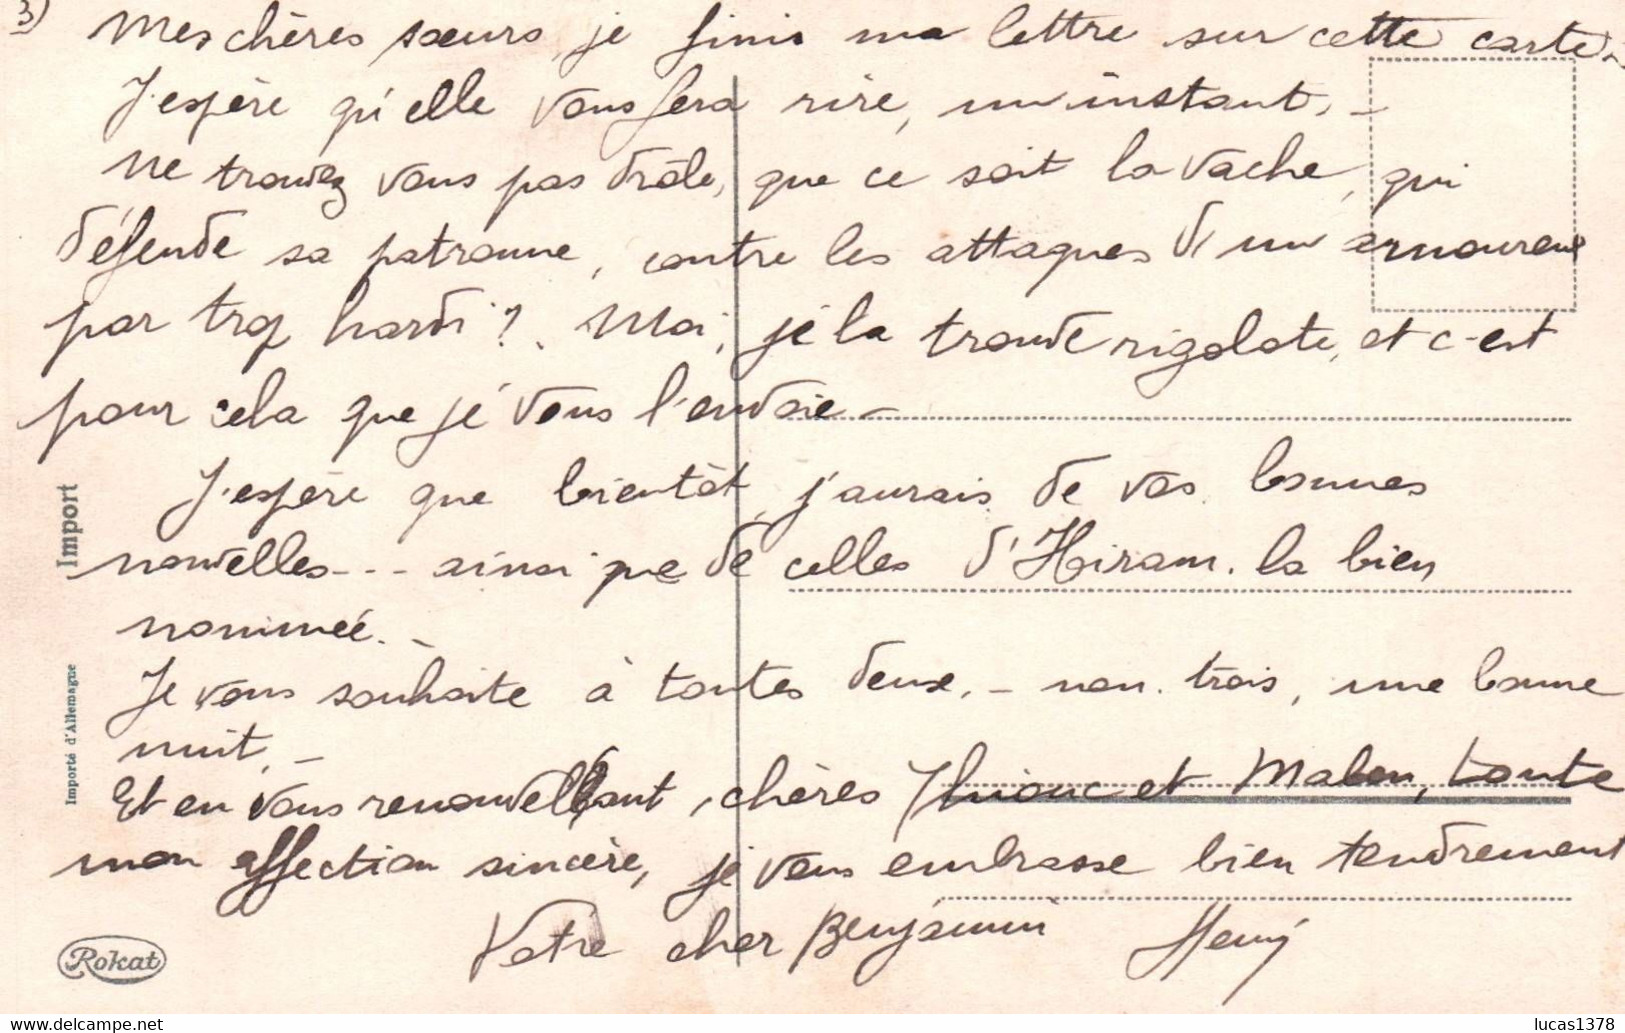 3)
Mes chères sœurs je finis ma lettre sur cette carte.
J'espère qu'elle vous fera rire, un instant. -
Ne trouvez vous pas drôle, que ce soit la vache, qui
défende sa patronne, contre les attaques d'un amoureux
par trop hardi ? Moi, je la trouve rigolote, et c'est
pour cela que je vous l'envoie -
J'espère que bientôt, j'aurais de vos bonnes
nouvelles - - - ainsi que de celles d'Hiram. la bien
nommée. -
Je vous souhaite à toutes deux. - non. trois, une bonne
nuit. -
Et en vous renouvellant, chères et Malou, toute
mon affection sincère, je vous embrasse bien tendrement
Votre cher Benjamin
Import
Importé d'Allemagne
Rokat
www.delcampe.net
lucas1378